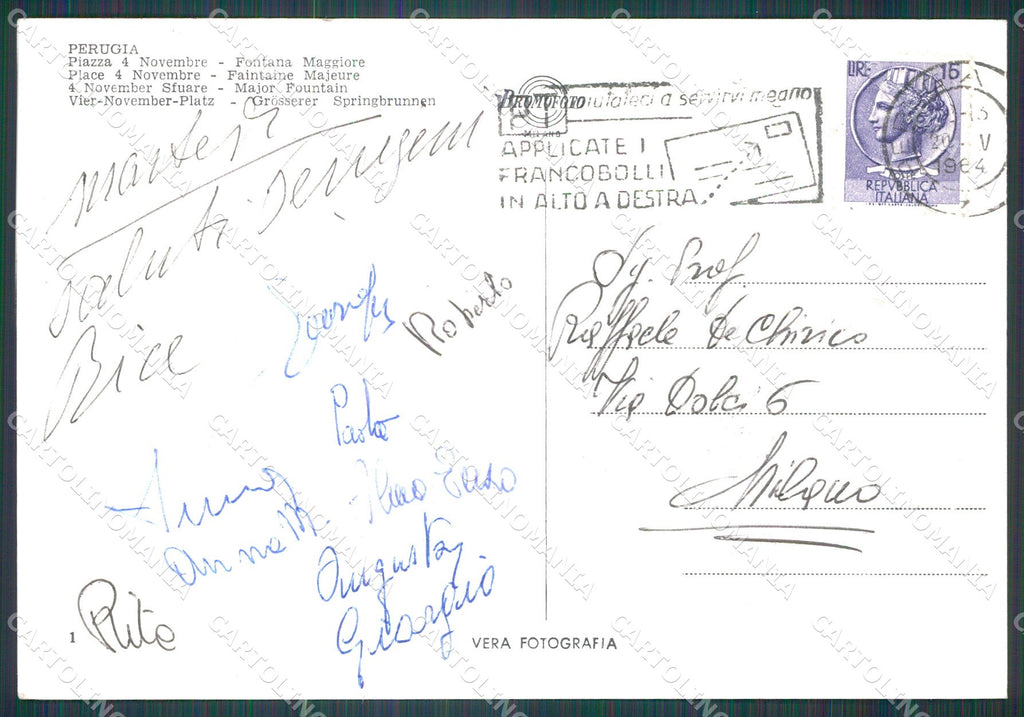 PERUGIA
Piazza 4 Novembre - Fontana Maggiore
Place 4 Novembre - Faintaine Majeure
4 November Sfuare - Major Fountain
Vier-November-Platz - Grösserer Springbrunnen
saluti
Bice
Roberto
Paola
Anna M.
Augusta
Giorgio
Rita
1
BROMOFOTO
MILANO
aiutateci a servirvi meglio
APPLICATE I
FRANCOBOLLI
IN ALTO A DESTRA
LIRE 15
REPVBBLICA
ITALIANA
1964
Sig. Prof.
Raffaele De Chirico
Via Dolci 6
Milano
VERA FOTOGRAFIA
CARTOLINOMANIA